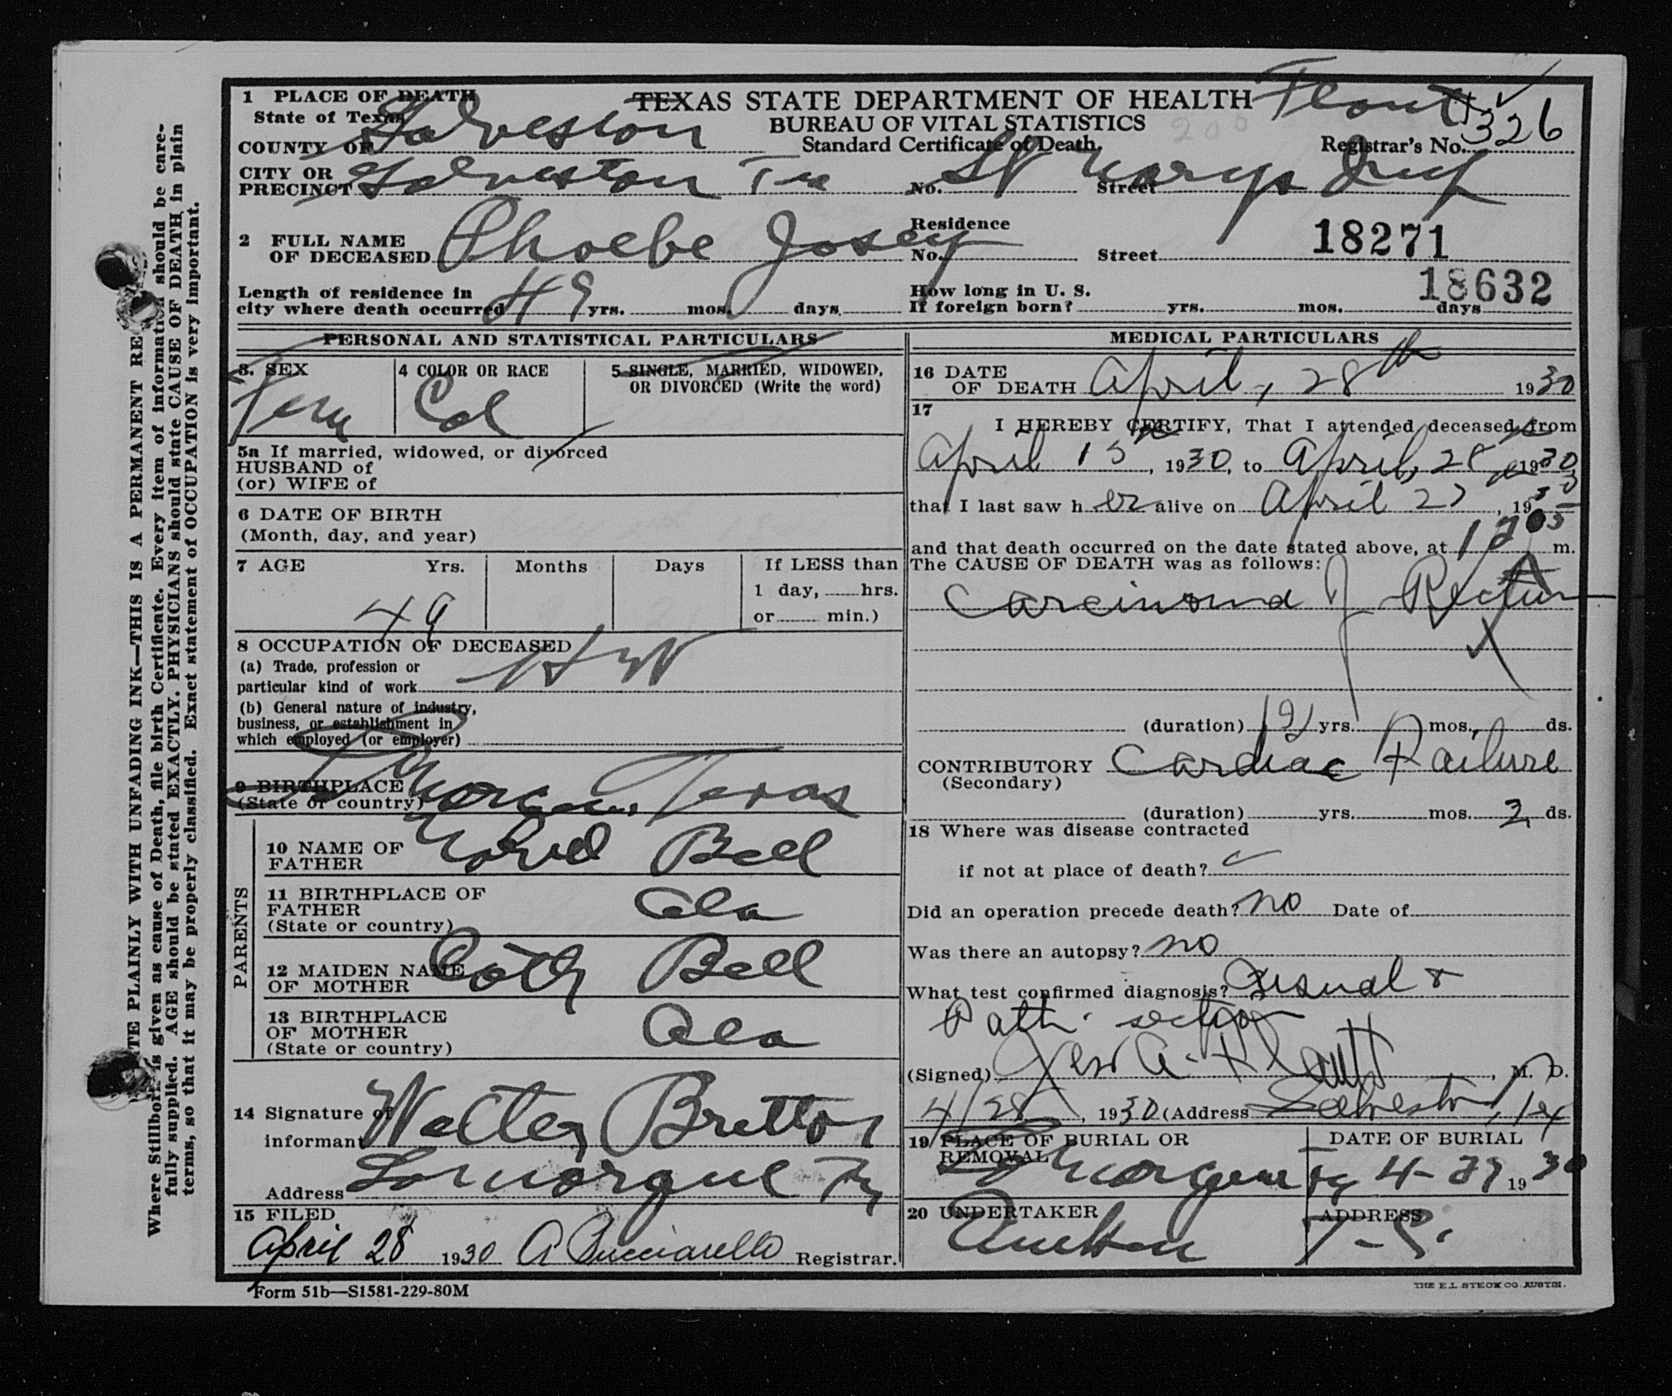 WRITE PLAINLY WITH UNFADING INK—THIS IS A PERMANENT RE
Where Stillborn is given as cause of Death, file birth Certificate. Every item of information should be care-
fully supplied. AGE should be stated EXACTLY. PHYSICIANS should state CAUSE OF DEATH in plain
terms, so that it may be properly classified. Exact statement of OCCUPATION is very important.
1 PLACE OF DEATH
State of Texas
COUNTY OF Galveston
TEXAS STATE DEPARTMENT OF HEALTH
BUREAU OF VITAL STATISTICS
Standard Certificate of Death.
Registrar's No. 326
CITY OR
PRECINCT Galveston Tex No. St Marys Street Inf
2 FULL NAME
OF DECEASED Phoebe Josey
Residence
No. Street
18271
18632
Length of residence in
city where death occurred 49 yrs. mos. days.
How long in U. S.
If foreign born? yrs. mos. days
PERSONAL AND STATISTICAL PARTICULARS
3. SEX
Fem
4 COLOR OR RACE
Col
5 SINGLE, MARRIED, WIDOWED,
OR DIVORCED (Write the word)
5a If married, widowed, or divorced
HUSBAND of
(or) WIFE of
6 DATE OF BIRTH
(Month, day, and year)
7 AGE Yrs. Months Days
49
If LESS than
1 day, hrs.
or min.)
8 OCCUPATION OF DECEASED
(a) Trade, profession or
particular kind of work HW
(b) General nature of industry,
business, or establishment in
which employed (or employer)
9 BIRTHPLACE
(State or country) Texas
PARENTS
10 NAME OF
FATHER Bell
11 BIRTHPLACE OF
FATHER
(State or country) Ala
12 MAIDEN NAME
OF MOTHER Bell
13 BIRTHPLACE
OF MOTHER
(State or country) Ala
14 Signature of
informant Walter Britton
Address Lamorgue
15 FILED
April 28 1930 A Bucciarello Registrar.
MEDICAL PARTICULARS
16 DATE
OF DEATH April, 28th 1930
17
I HEREBY CERTIFY, That I attended deceased from
April 15th, 1930, to April, 28 1930,
that I last saw her alive on April 27, 1930
and that death occurred on the date stated above, at 1205 m.
The CAUSE OF DEATH was as follows:
Carcinoma of Rectum
(duration) yrs. mos. ds.
CONTRIBUTORY Cardiac Failure
(Secondary)
(duration) yrs. mos. 2 ds.
18 Where was disease contracted
if not at place of death?
Did an operation precede death? no Date of
Was there an autopsy? no
What test confirmed diagnosis? Visual &
Path. section
(Signed) M. D.
4/28, 1930 (Address Galveston, Tex
19 PLACE OF BURIAL OR
REMOVAL
DATE OF BURIAL
4-29 1930
20 UNDERTAKER
ADDRESS
Form 51b—S1581-229-80M
THE E.L. STECK CO. AUSTIN.